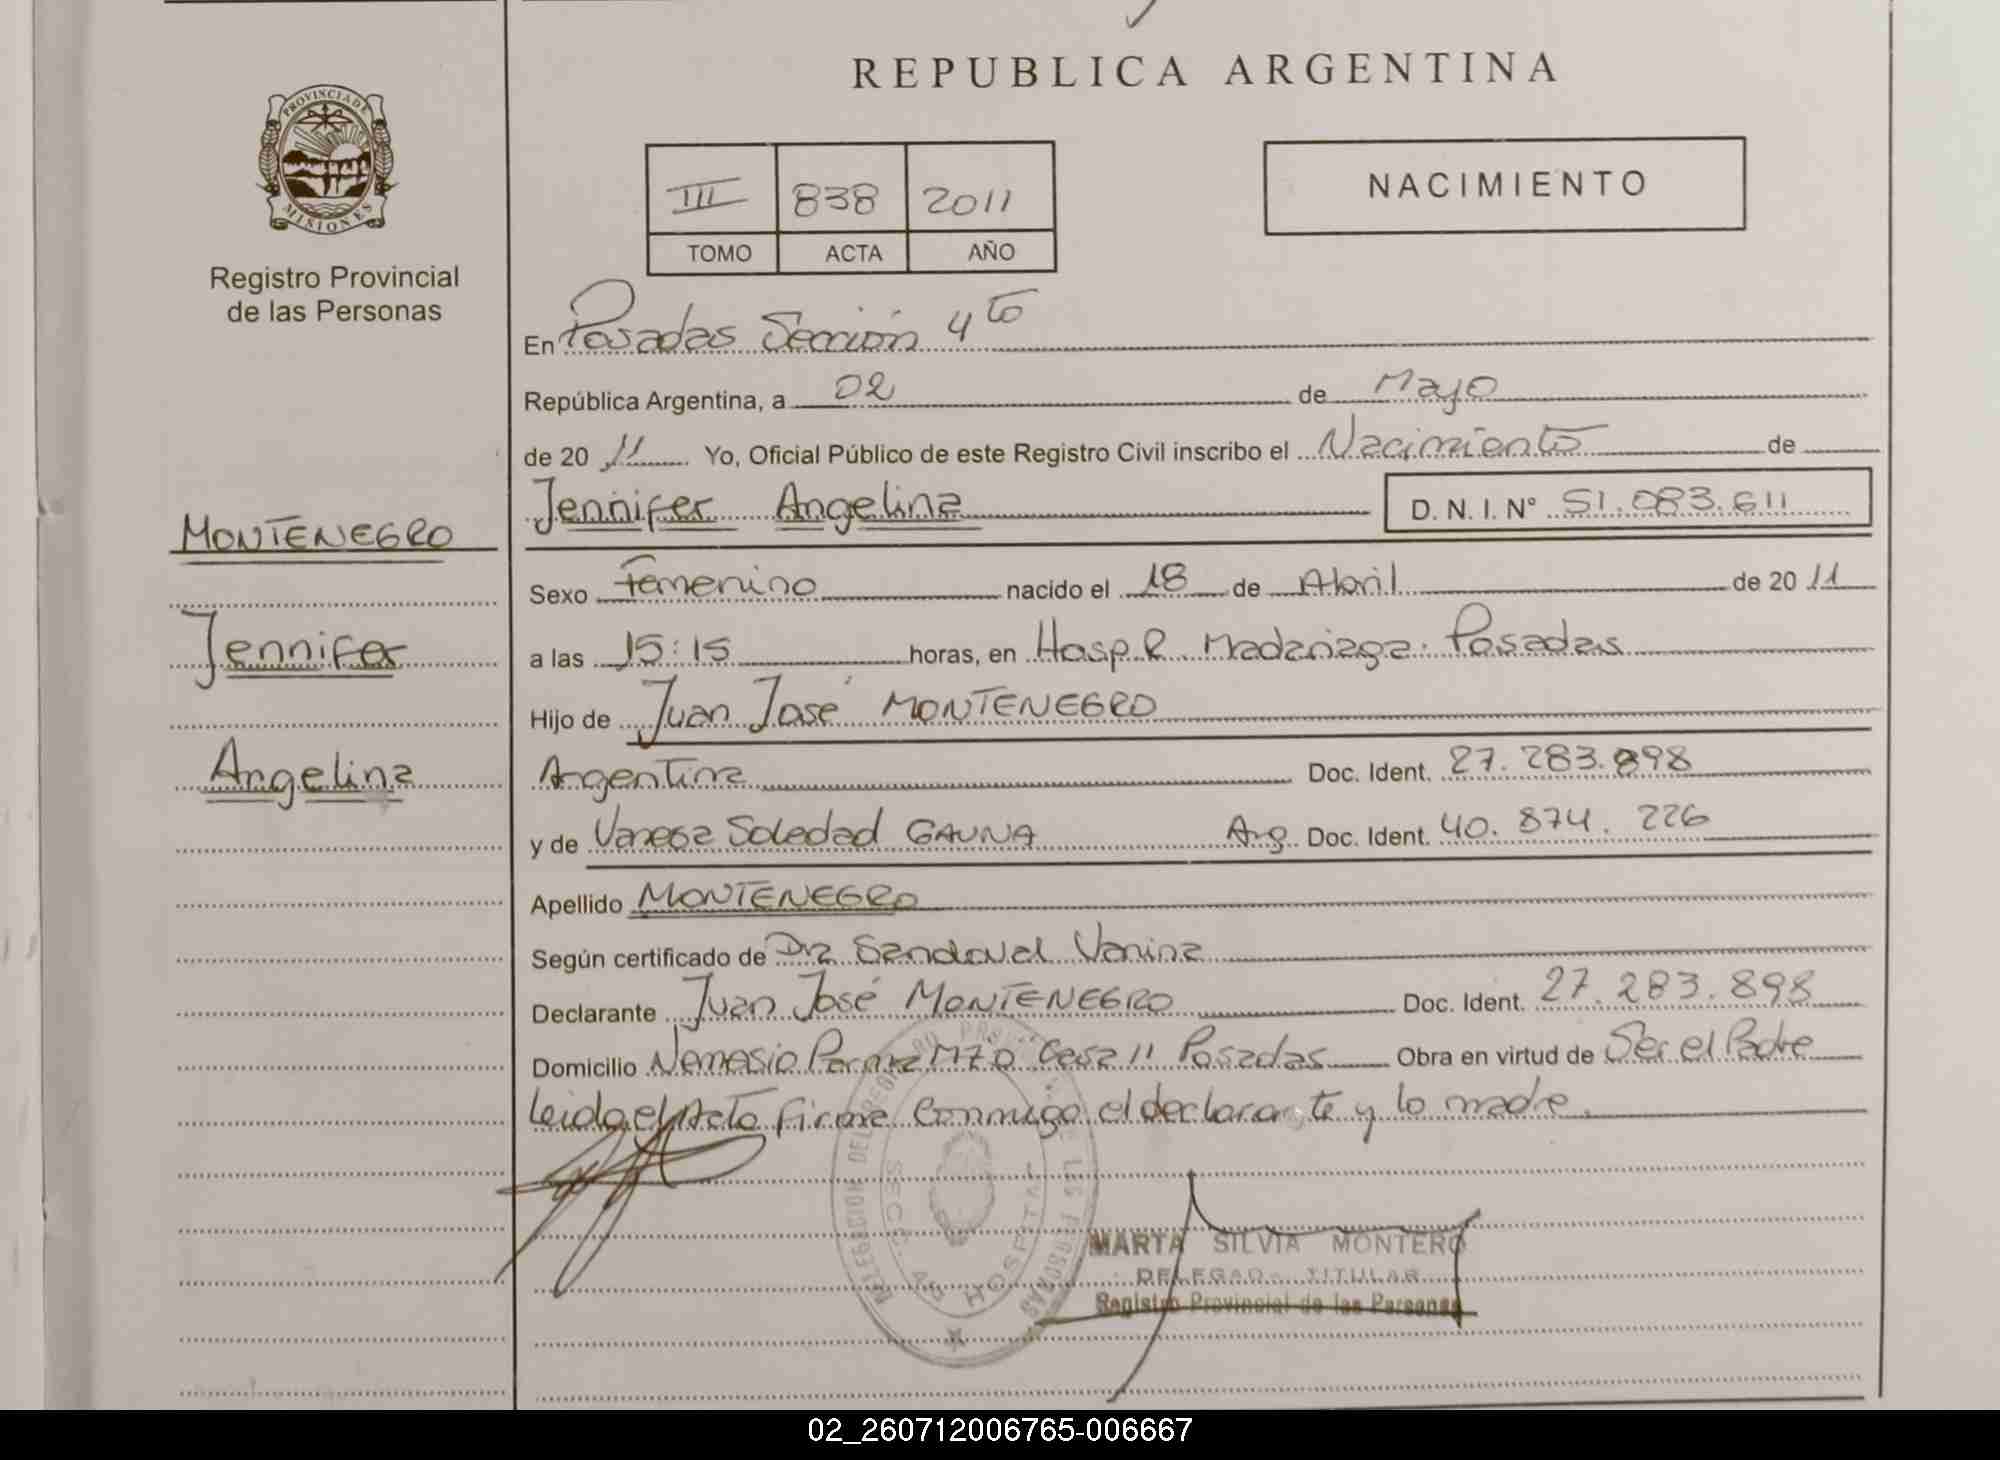 REPUBLICA ARGENTINA
PROVINCIA DE
MISIONES
Registro Provincial
de las Personas
III 838 2011
TOMO ACTA AÑO
NACIMIENTO
En Posadas Sección 4to
República Argentina, a 02 de Mayo
de 20 11 Yo, Oficial Público de este Registro Civil inscribo el Nacimiento de
Jennifer Angelina D. N. I. N° 51.083.611
MONTENEGRO
Jennifer
Angelina
Sexo Femenino nacido el 18 de Abril de 20 11
a las 15:15 horas, en Hosp. R. Madariaga. Posadas
Hijo de Juan José MONTENEGRO
Argentina Doc. Ident. 27.283.898
y de Vanesa Soledad GAUNA Arg. Doc. Ident. 40.874.226
Apellido MONTENEGRO
Según certificado de Dra Sandoval Vanina
Declarante Juan José MONTENEGRO Doc. Ident. 27.283.898
Domicilio Nemesio Parma Casa 11 Posadas Obra en virtud de Ser el Padre
Leida el Acta firma conmigo el declarante y la madre.
MARTA SILVIA MONTERO
DELEGADA TITULAR
Registro Provincial de las Personas
HOSPITAL
02_260712006765-006667